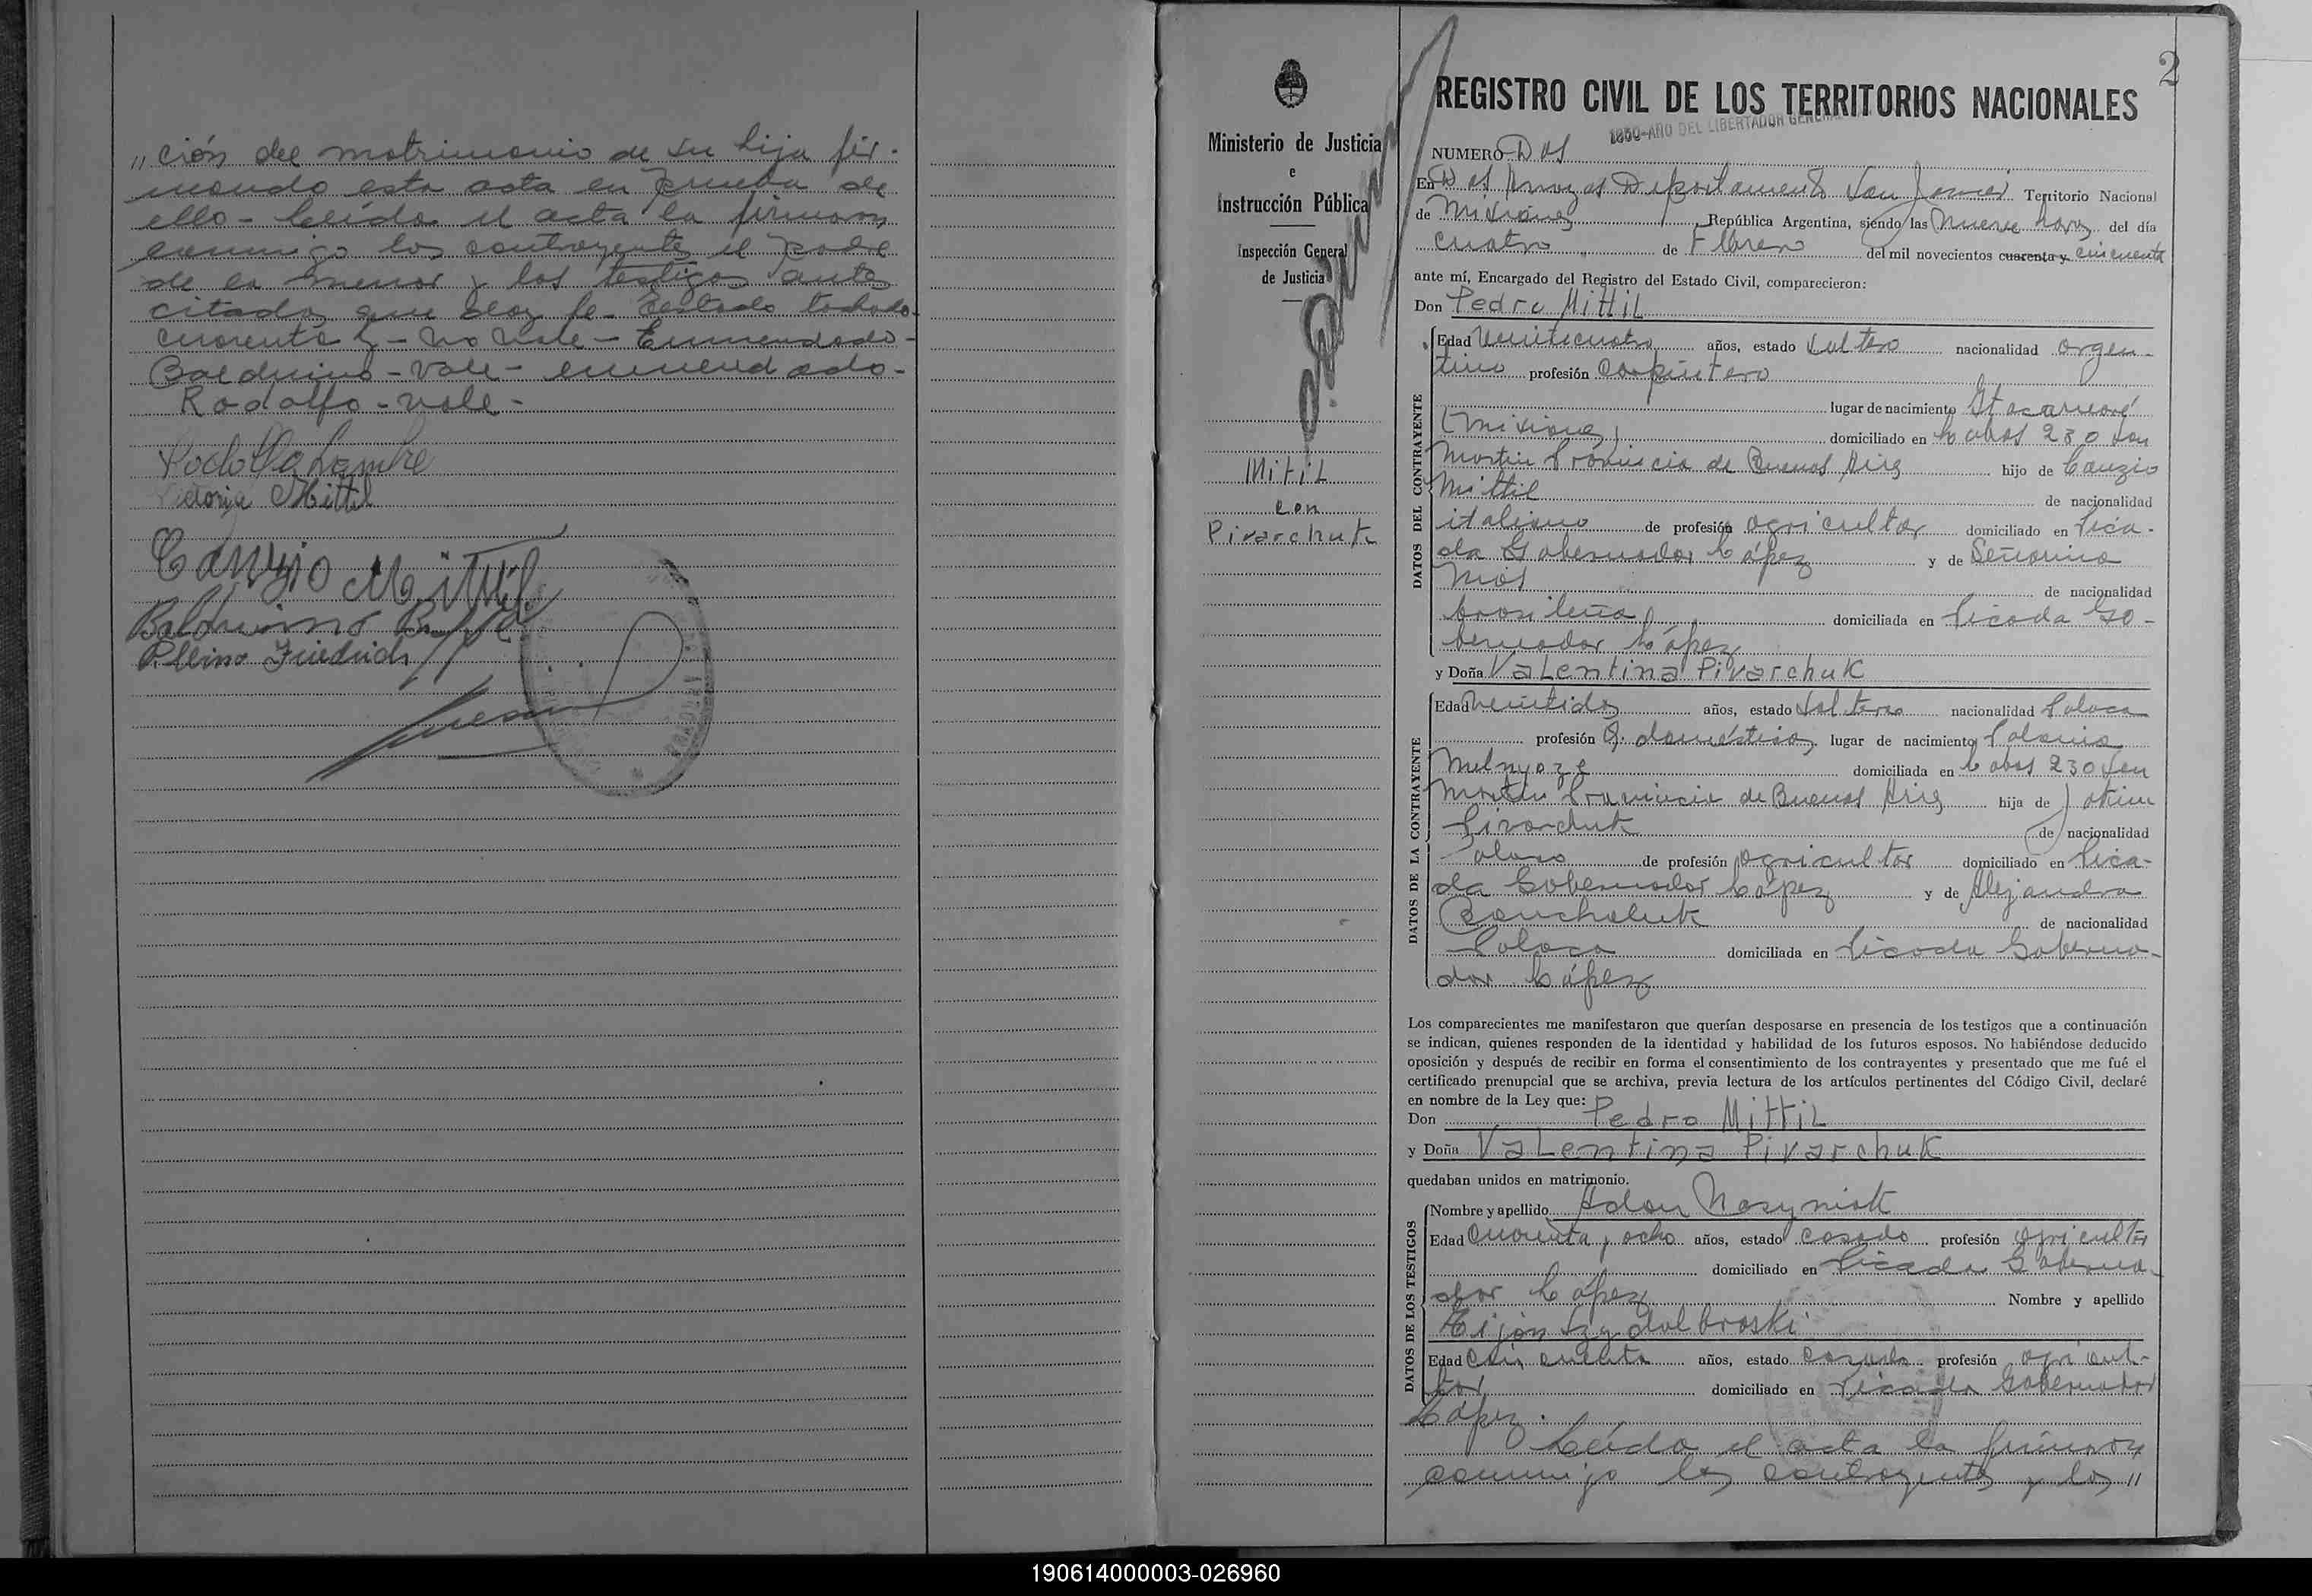 "ción del matrimonio de su hija fir-
mando esta acta en prueba de
ello - Leída el acta la firmaron
conmigo los contrayentes el padre
de la menor y los testigos antes
citados que doy fe - Testado
cuarenta y - no vale - Enmendado -
Balduino - vale - enmendado -
Rodolfo - vale -
Rodolfo
Victoria Mittil
Canzio Mittil
Balduino
Friedrich
2
Ministerio de Justicia
e
Instrucción Pública
Inspección General
de Justicia
Mitil
con
Pivarchuk
REGISTRO CIVIL DE LOS TERRITORIOS NACIONALES
1950-AÑO DEL LIBERTADOR GENERAL
NUMERO Dos
En Dos Arroyos Departamento San Javier Territorio Nacional
de Misiones República Argentina, siendo las nueve horas del día
cuatro de Febrero del mil novecientos cuarenta y cincuenta
ante mí, Encargado del Registro del Estado Civil, comparecieron:
Don Pedro Mittil
DATOS DEL CONTRAYENTE
Edad veinticuatro años, estado soltero nacionalidad argen-
tino profesión Carpintero
lugar de nacimiento Itacaruaré
(Misiones) domiciliado en Cabos 230 San
Martin Provincia de Buenos Aires hijo de Canzio
Mittil de nacionalidad
italiano de profesión agricultor domiciliado en Pica-
da Gobernador López y de Señorina
de nacionalidad
brasileña domiciliada en Picada Go-
bernador López
y Doña Valentina Pivarchuk
DATOS DE LA CONTRAYENTE
Edad veintidos años, estado soltera nacionalidad Polaca
profesión Q. domésticos lugar de nacimiento Polonia
domiciliada en Cabos 230 San
Martin Provincia de Buenos Aires hija de Jokim
Pivarchuk de nacionalidad
Polaco de profesión agricultor domiciliado en Pica-
da Gobernador López y de Alejandra
de nacionalidad
Polaca domiciliada en Picada Goberna-
dor López
Los comparecientes me manifestaron que querían desposarse en presencia de los testigos que a continuación
se indican, quienes responden de la identidad y habilidad de los futuros esposos. No habiéndose deducido
oposición y después de recibir en forma el consentimiento de los contrayentes y presentado que me fué el
certificado prenupcial que se archiva, previa lectura de los artículos pertinentes del Código Civil, declaré
en nombre de la Ley que:
Don Pedro Mittil
y Doña Valentina Pivarchuk
quedaban unidos en matrimonio.
DATOS DE LOS TESTIGOS
Nombre y apellido Adan
Edad cuarenta y ocho años, estado casado profesión agricultor
domiciliado en Picada Goberna-
dor López Nombre y apellido
Edad Cincuenta años, estado casado profesión agricul-
tor domiciliado en Picada Gobernador
López.
Leída el acta la firmaron
conmigo los contrayentes y los "
190614000003-026960